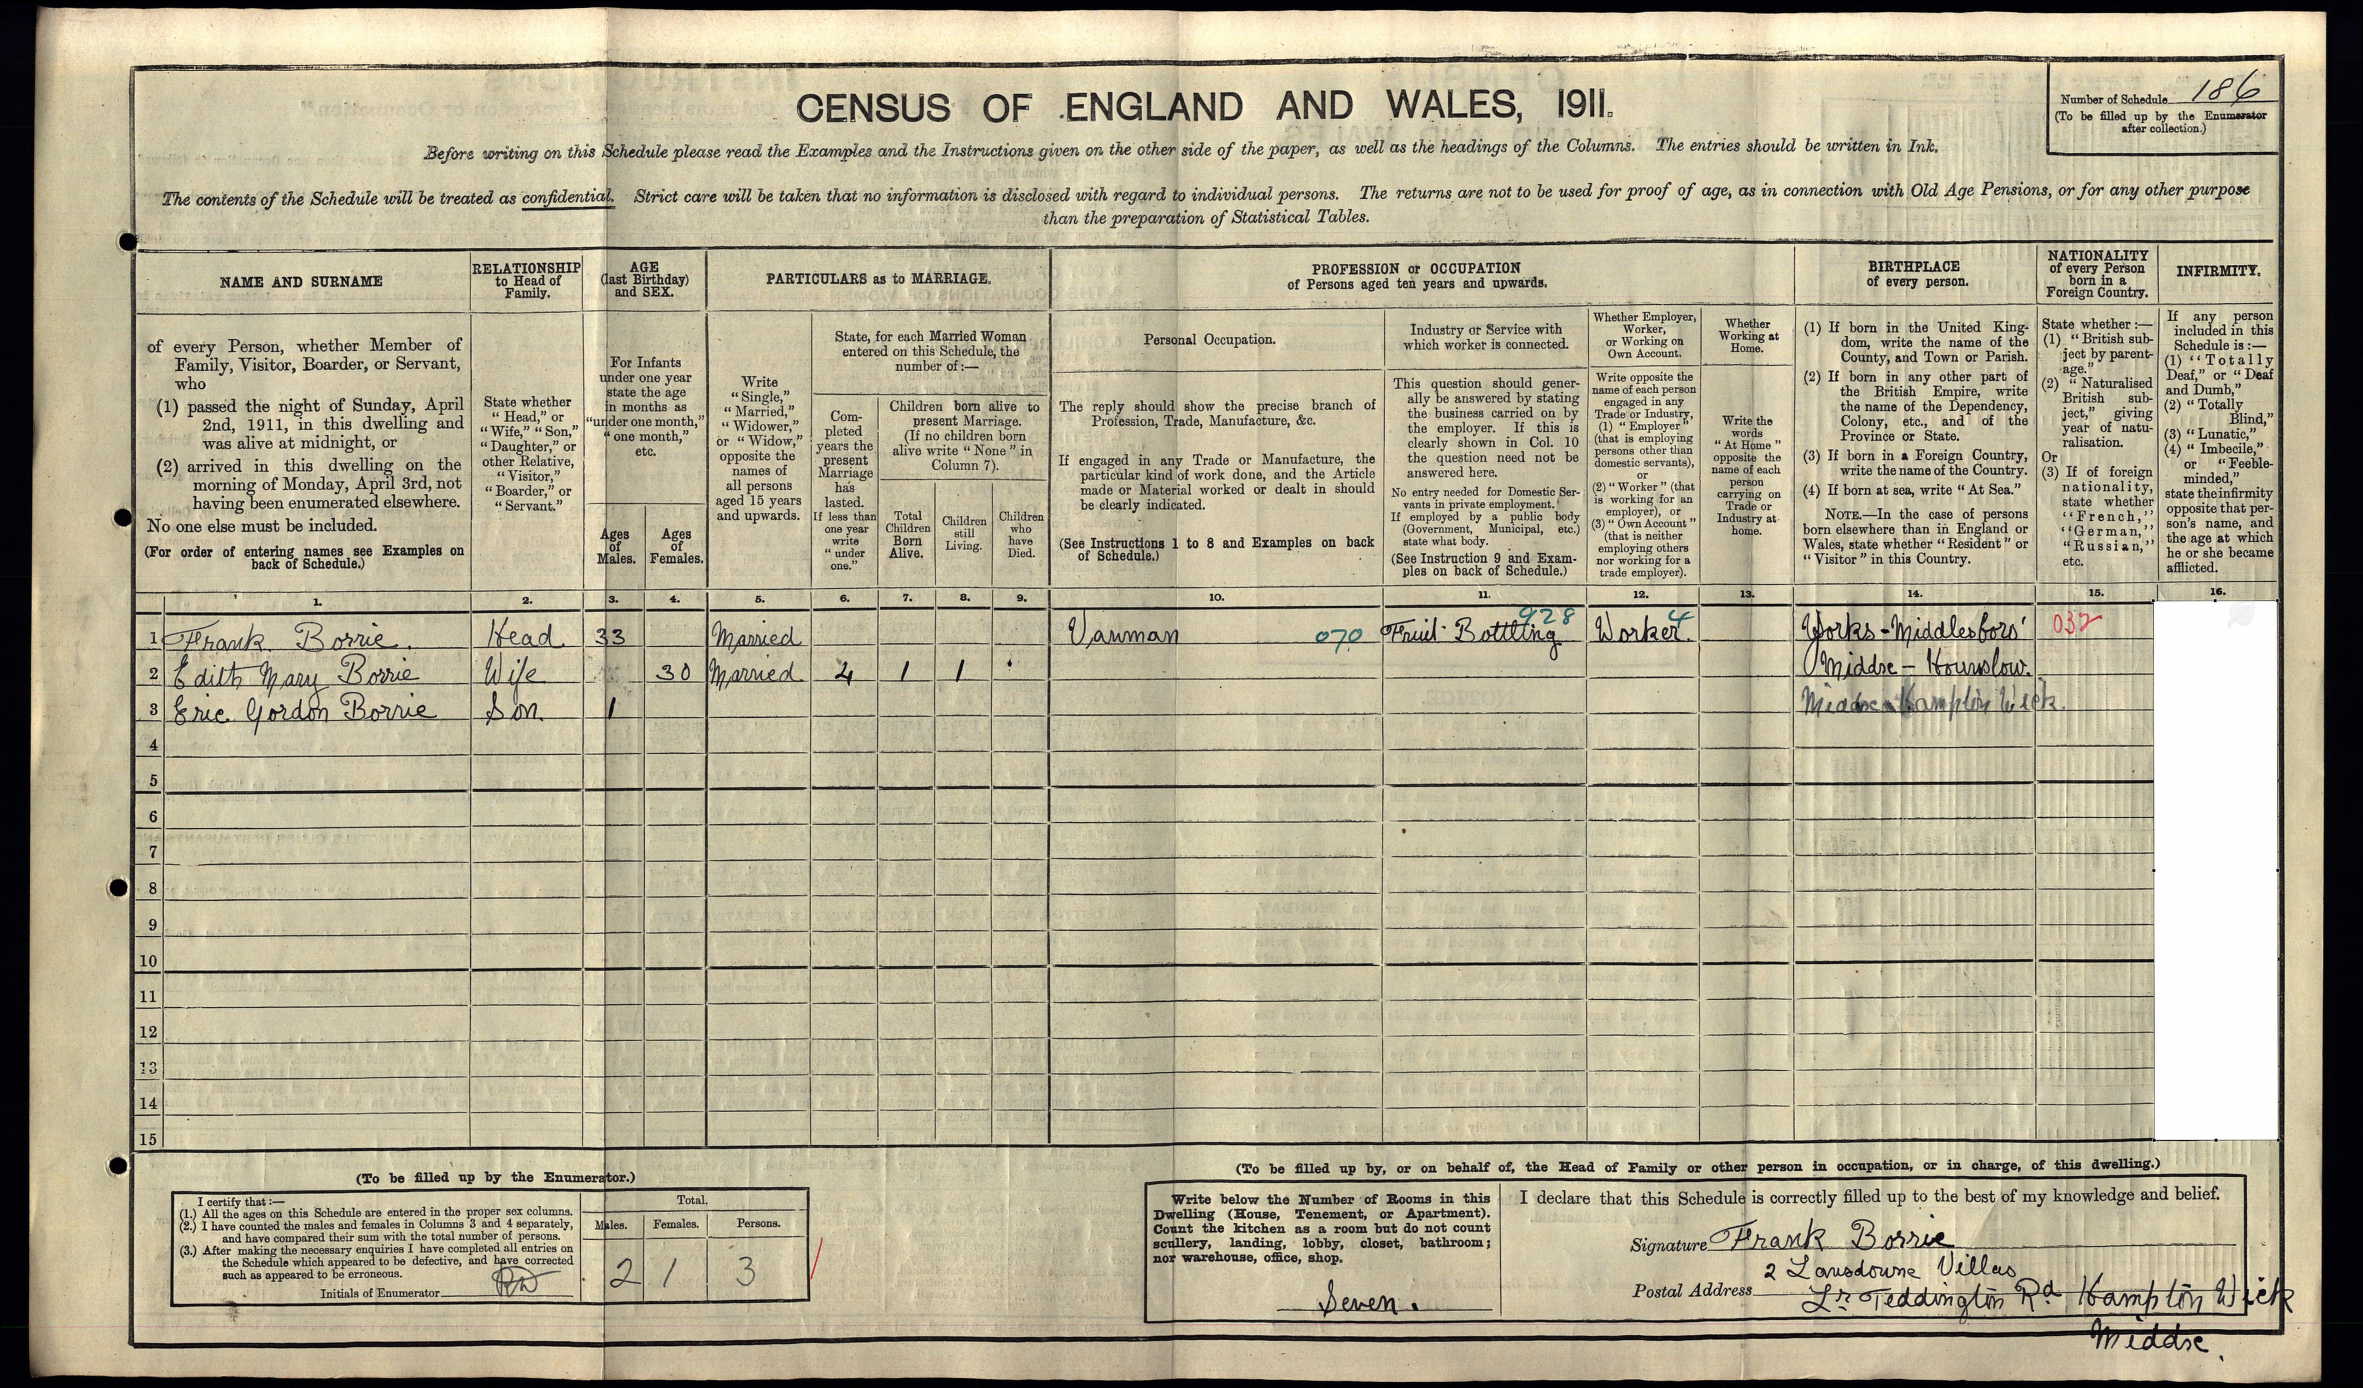 CENSUS OF ENGLAND AND WALES, 1911.
Number of Schedule 186
(To be filled up by the Enumerator
after collection.)
Before writing on this Schedule please read the Examples and the Instructions given on the other side of the paper, as well as the headings of the Columns. The entries should be written in Ink.
The contents of the Schedule will be treated as confidential. Strict care will be taken that no information is disclosed with regard to individual persons. The returns are not to be used for proof of age, as in connection with Old Age Pensions, or for any other purpose
than the preparation of Statistical Tables.
NAME AND SURNAME
of every Person, whether Member of
Family, Visitor, Boarder, or Servant,
who
(1) passed the night of Sunday, April
2nd, 1911, in this dwelling and
was alive at midnight, or
(2) arrived in this dwelling on the
morning of Monday, April 3rd, not
having been enumerated elsewhere.
No one else must be included.
(For order of entering names see Examples on
back of Schedule.)
RELATIONSHIP
to Head of
Family.
State whether
"Head," or
"Wife," "Son,"
"Daughter," or
other Relative,
"Visitor,"
"Boarder," or
"Servant."
AGE
(last Birthday)
and SEX.
For Infants
under one year
state the age
in months as
"under one month,"
"one month,"
etc.
Ages
of
Males.
Ages
of
Females.
PARTICULARS as to MARRIAGE.
Write
"Single,"
"Married,"
"Widower,"
or "Widow,"
opposite the
names of
all persons
aged 15 years
and upwards.
State, for each Married Woman
entered on this Schedule, the
number of:—
Com-
pleted
years the
present
Marriage
has
lasted.
If less than
one year
write
"under
one."
Children born alive to
present Marriage.
(If no children born
alive write "None" in
Column 7).
Total
Children
Born
Alive.
Children
still
Living.
Children
who
have
Died.
PROFESSION or OCCUPATION
of Persons aged ten years and upwards.
Personal Occupation.
The reply should show the precise branch of
Profession, Trade, Manufacture, &c.
If engaged in any Trade or Manufacture, the
particular kind of work done, and the Article
made or Material worked or dealt in should
be clearly indicated.
(See Instructions 1 to 8 and Examples on back
of Schedule.)
Industry or Service with
which worker is connected.
This question should gener-
ally be answered by stating
the business carried on by
the employer. If this is
clearly shown in Col. 10
the question need not be
answered here.
No entry needed for Domestic Ser-
vants in private employment.
If employed by a public body
(Government, Municipal, etc.)
state what body.
(See Instruction 9 and Exam-
ples on back of Schedule.)
Whether Employer,
Worker,
or Working on
Own Account.
Write opposite the
name of each person
engaged in any
Trade or Industry,
(1) "Employer"
(that is employing
persons other than
domestic servants),
or
(2) "Worker" (that
is working for an
employer), or
(3) "Own Account"
(that is neither
employing others
nor working for a
trade employer).
Whether
Working at
Home.
Write the
words
"At Home"
opposite the
name of each
person
carrying on
Trade or
Industry at
home.
BIRTHPLACE
of every person.
(1) If born in the United King-
dom, write the name of the
County, and Town or Parish.
(2) If born in any other part of
the British Empire, write
the name of the Dependency,
Colony, etc., and of the
Province or State.
(3) If born in a Foreign Country,
write the name of the Country.
(4) If born at sea, write "At Sea."
NOTE.—In the case of persons
born elsewhere than in England or
Wales, state whether "Resident" or
"Visitor" in this Country.
NATIONALITY
of every Person
born in a
Foreign Country.
State whether:—
(1) "British sub-
ject by parent-
age."
(2) "Naturalised
British sub-
ject," giving
year of natu-
ralisation.
Or
(3) If of foreign
nationality,
state whether
"French,"
"German,"
"Russian,"
etc.
INFIRMITY.
If any person
included in this
Schedule is:—
(1) "Totally
Deaf," or "Deaf
and Dumb,"
(2) "Totally
Blind,"
(3) "Lunatic,"
(4) "Imbecile,"
or "Feeble-
minded,"
state the infirmity
opposite that per-
son's name, and
the age at which
he or she became
afflicted.
1. 2. 3. 4. 5. 6. 7. 8. 9. 10. 11. 12. 13. 14. 15. 16.
1 Frank Borrie. Head 33 Married Vanman 070 Fruit Bottling 928 Worker 4 Yorks - Middlesboro' 032
2 Edith Mary Borrie Wife 30 Married 4 1 1 Middse - Hounslow.
3 Eric Gordon Borrie Son 1 Middse Hampton Wick.
4
5
6
7
8
9
10
11
12
13
14
15
(To be filled up by the Enumerator.)
I certify that:—
(1.) All the ages on this Schedule are entered in the proper sex columns.
(2.) I have counted the males and females in Columns 3 and 4 separately,
and have compared their sum with the total number of persons.
(3.) After making the necessary enquiries I have completed all entries on
the Schedule which appeared to be defective, and have corrected
such as appeared to be erroneous.
Initials of Enumerator
Total.
Males. Females. Persons.
2 1 3
(To be filled up by, or on behalf of, the Head of Family or other person in occupation, or in charge, of this dwelling.)
Write below the Number of Rooms in this
Dwelling (House, Tenement, or Apartment).
Count the kitchen as a room but do not count
scullery, landing, lobby, closet, bathroom;
nor warehouse, office, shop.
Seven.
I declare that this Schedule is correctly filled up to the best of my knowledge and belief.
Signature Frank Borrie
Postal Address 2 Lansdowne Villas
Lr Teddington Rd Hampton Wick
Middse.